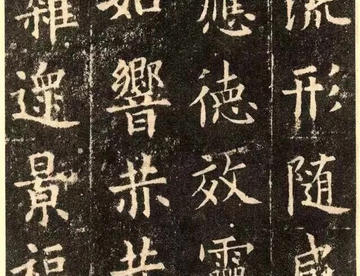 流形随感
應德效靈
如響赫赫
雜遝景福